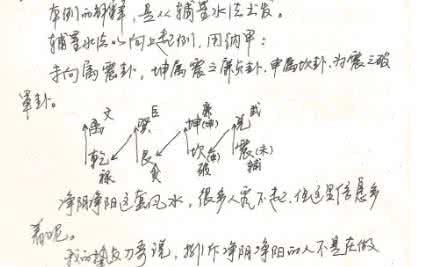 本例的解释，是从辅星水法出发。
辅星水法以向上起例，用纳甲：
未向属震卦，坤属震之廉贞卦，申属坎卦，为震之破
军卦。
文 巨 廉 武
离 巽 坤(申) 兑
乾 艮 坎(申) 震(未)
禄 贪 破 辅
净阴净阳这套风水，很多人瞧不起，但这里信息多
着呢。
我的 说，排斥净阴净阳的人不是在做